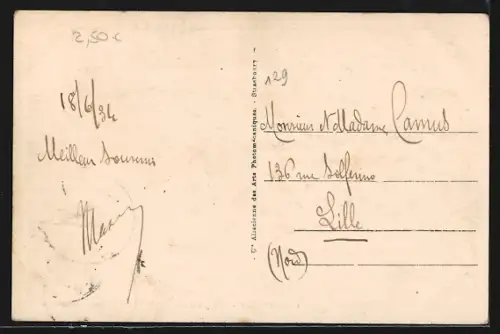 2,50€
18/6/34
Meilleur Souvenir
Marin
Cie Alsacienne des Arts Photomécaniques. - Strasbourg
129
Monsieur & Madame Camus
136 rue Solférino
Lille
(Nord)